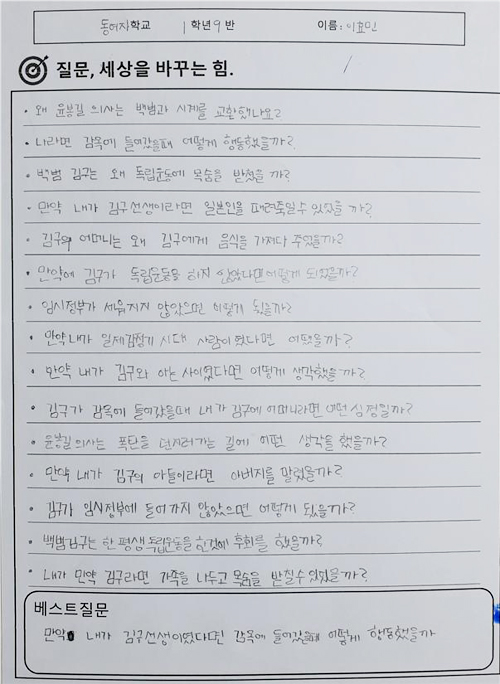 동여자학교 1학년 9반 이름: 이효민
질문, 세상을 바꾸는 힘.
• 왜 윤봉길 의사는 백범과 시계를 교환했나요?
• 나라면 감옥에 들어갔을때 어떻게 행동했을까?
• 백범 김구는 왜 독립운동에 목숨을 받쳤을 까?
• 만약 내가 김구선생이라면 일본인을 때려죽일수 있었을 까?
• 김구의 어머니는 왜 김구에게 음식을 가져다 주었을까?
• 만약에 김구가 독립운동을 하지 않았다면 어떻게 되었을까?
• 임시정부가 세워지지 않았으면 어떻게 됬을까?
• 만약 내가 일제강점기 시대 사람이였다면 어땠을까?
• 만약 내가 김구와 아는 사이였다면 어떻게 생각했을 까?
• 김구가 감옥에 들어갔을때 내가 김구에 어머니라면 어떤 심정일까?
• 윤봉길 의사는 폭탄을 던지러가는 길에 어떤 생각을 했을까?
• 만약 내가 김구의 아들이라면 아버지를 말렸을까?
• 김구가 임시정부에 들어가지 않았으면 어떻게 됬을까?
• 백범김구는 한평생 독립운동을 한것에 후회를 했을까?
• 내가 만약 김구라면 가족을 나두고 목숨을 받칠수 있었을까?
베스트질문
만약 내가 김구선생이였다면 감옥에 들어갔을때 어떻게 행동했을까